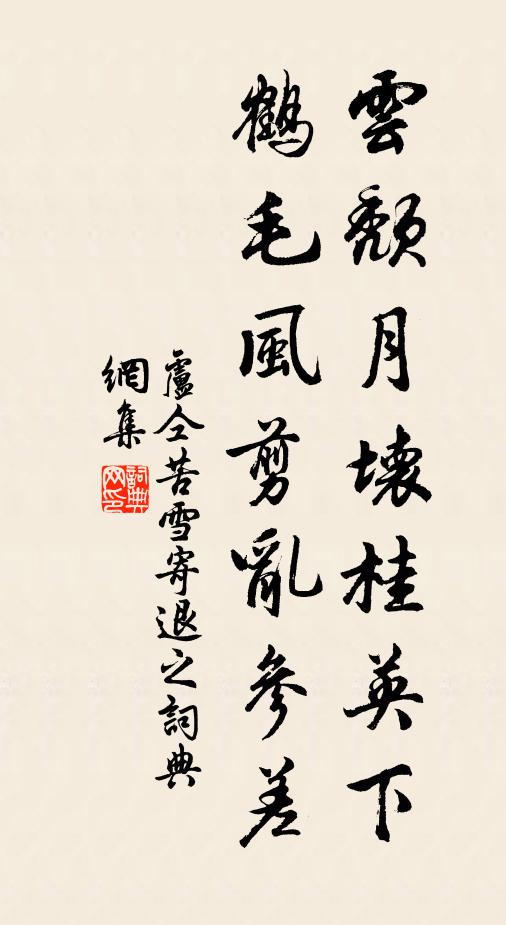 雲頹月壞桂英下
鶴毛風剪亂參差
盧仝苦雪寄退之詞典
網集
詞典
网印